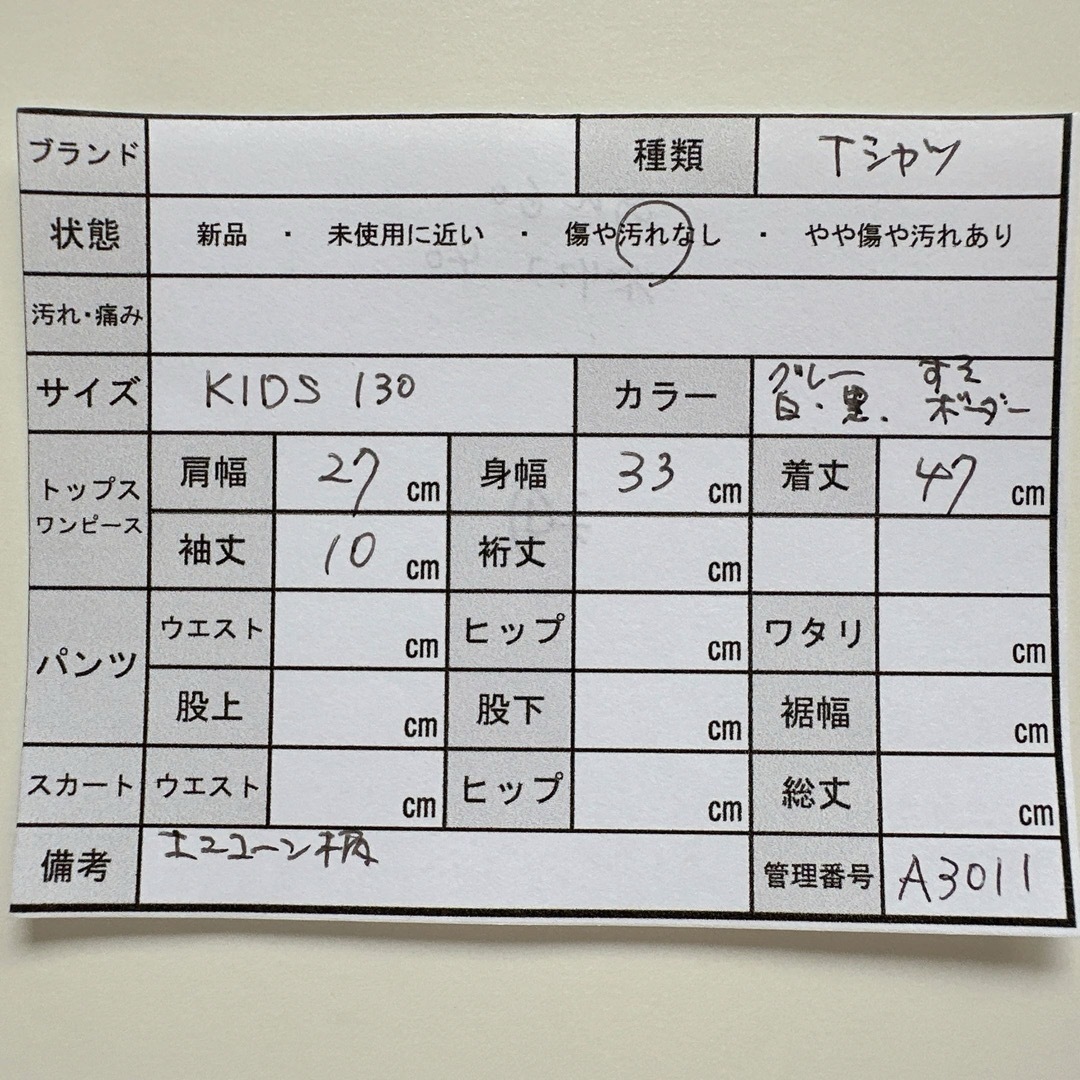 ブランド 種類 Tシャツ
状態 新品 ・ 未使用に近い ・ 傷や汚れなし ・ やや傷や汚れあり
汚れ・痛み
サイズ KIDS 130 カラー グレー すそ
白・黒. ボーダー
トップス
ワンピース
肩幅 27 cm 身幅 33 cm 着丈 47 cm
袖丈 10 cm 裄丈 cm
パンツ
ウエスト cm ヒップ cm ワタリ cm
股上 cm 股下 cm 裾幅 cm
スカート ウエスト cm ヒップ cm 総丈 cm
備考 柄 管理番号 A3011